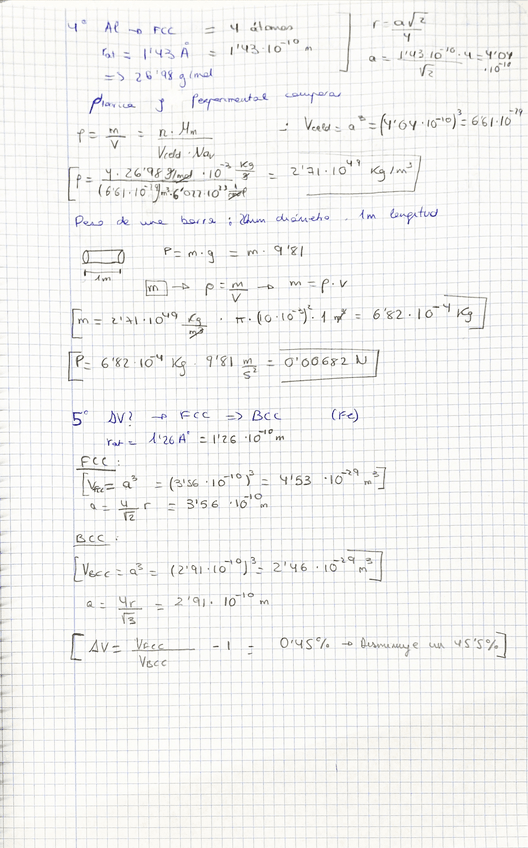 4º Al → FCC = 4 átomos
r = a√2 / 4
rat = 1'43 Å = 1'43·10⁻¹⁰ m
a = 1'43·10⁻¹⁰·4 / √2 = 4'04·10⁻¹⁰
=> 26'98 g/mol
ρ = m/V = n·Mm / Vceld·Nav
∴ Vceld = a³ = (4'04·10⁻¹⁰)³ = 6'61·10⁻²⁹
[ρ = 4·26'98 g/mol·10⁻³ Kg/g / (6'61·10⁻²⁹) m³·6'022·10²³ 1/mol = 2'71·10⁴⁹ Kg/m³
Peso de una barra; 20mm diámetro. 1m longitud
P = m·g = m·9'81
1m
m → ρ = m/V → m = ρ·V
[m = 2'71·10⁴⁹ Kg/m³ · π·(10·10⁻³)²·1 m³ = 6'82·10⁻⁴ Kg]
[P = 6'82·10⁻⁴ Kg · 9'81 m/s² = 0'00682 N
5º ΔV? → FCC => BCC (Fe)
rat = 1'26 Å = 1'26·10⁻¹⁰ m
FCC:
[Vfcc = a³ = (3'56·10⁻¹⁰)³ = 4'53·10⁻²⁹ m³]
a = 4/√2 r = 3'56·10⁻¹⁰ m
BCC:
[VBCC = a³ = (2'91·10⁻¹⁰)³ = 2'46·10⁻²⁹ m³]
a = 4r/√3 = 2'91·10⁻¹⁰ m
[ΔV = VFCC / VBCC - 1 = 0'45% → Disminuye un 45'5%]